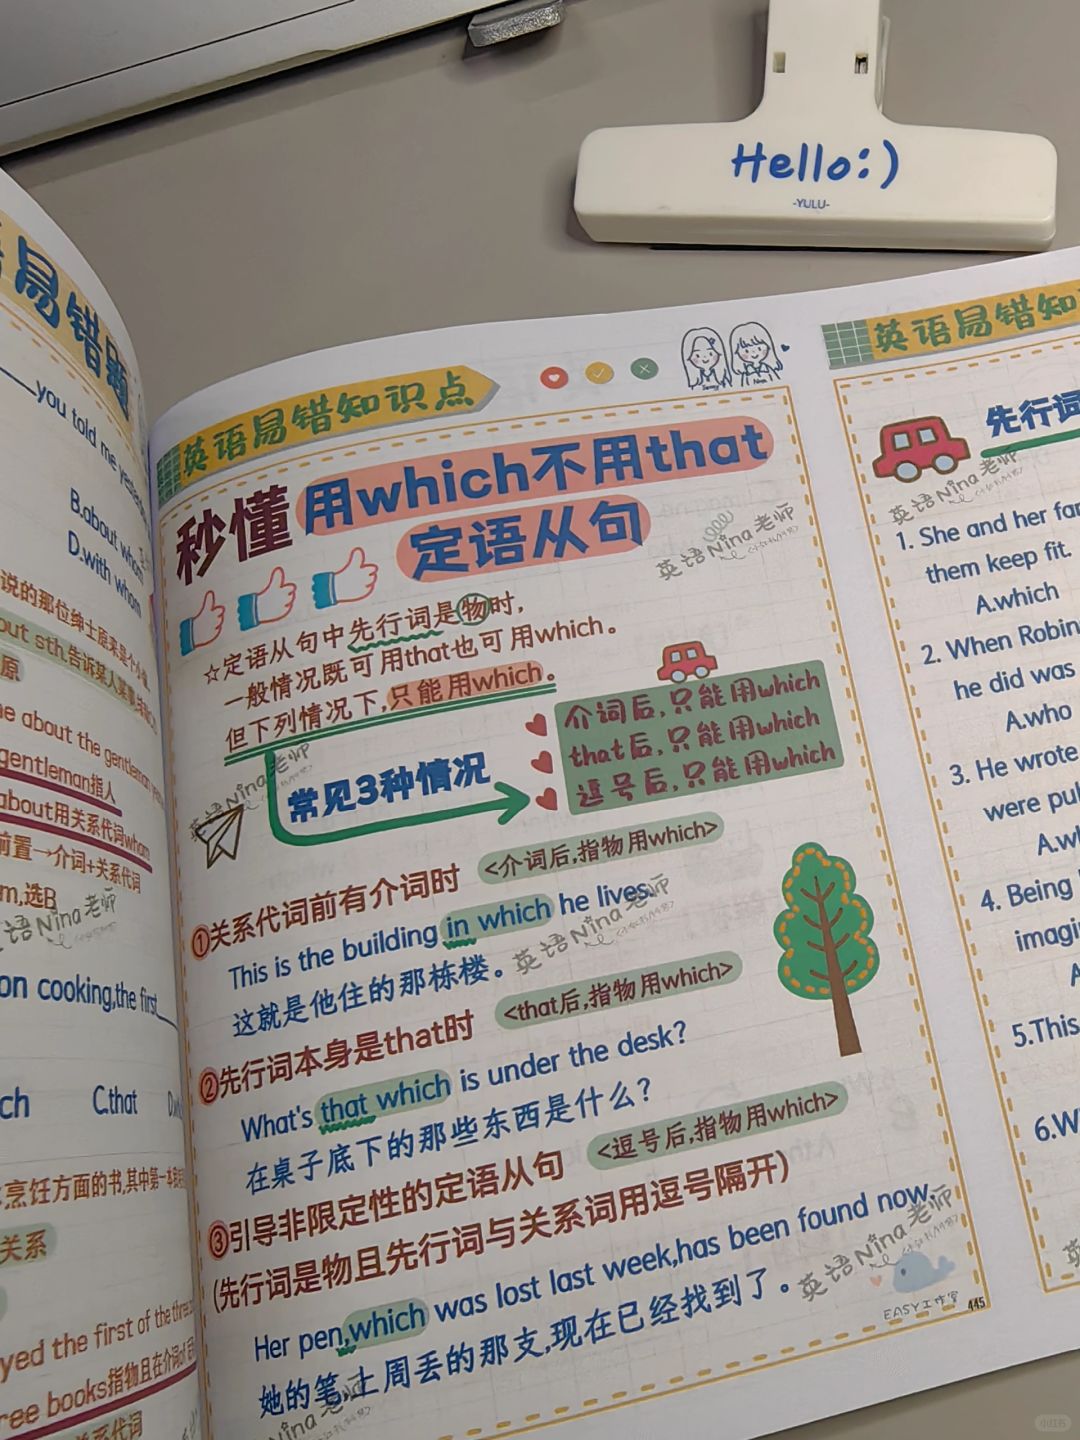 Hello:)
-YULU-
易错题
you told me yesterday
B.about whom
D.with whom
out sth.告诉某人某事
about the gentleman
gentleman指人
about用关系代词whom
前置→介词+关系代词
选B
英语Nina老师
on cooking,the first
ch C.that
烹饪方面的书,其中第一本
关系
yed the first of the three
ree books指物且在介词of后
关系代词
英语易错知识点
秒懂 用which不用that
定语从句
英语Nina老师
☆定语从句中先行词是物时,
一般情况既可用that也可用which。
但下列情况下,只能用which。
常见3种情况
介词后,只能用which
that后,只能用which
逗号后,只能用which
英语Nina老师
①关系代词前有介词时 <介词后,指物用which>
This is the building in which he lives.
这就是他住的那栋楼。
英语Nina老师
②先行词本身是that时 <that后,指物用which>
What's that which is under the desk?
在桌子底下的那些东西是什么?
③引导非限定性的定语从句 <逗号后,指物用which>
(先行词是物且先行词与关系词用逗号隔开)
Her pen,which was lost last week,has been found now.
她的笔,上周丢的那支,现在已经找到了。
英语Nina老师
EASY工作室
445
英语Nina老师
英语易错知
先行词
英语Nina老师
1. She and her
them keep fit.
A.which
2. When Robin
he did was
A.who
3. He wrote
were
4. Being
imagi
5.This
6.W
小红书